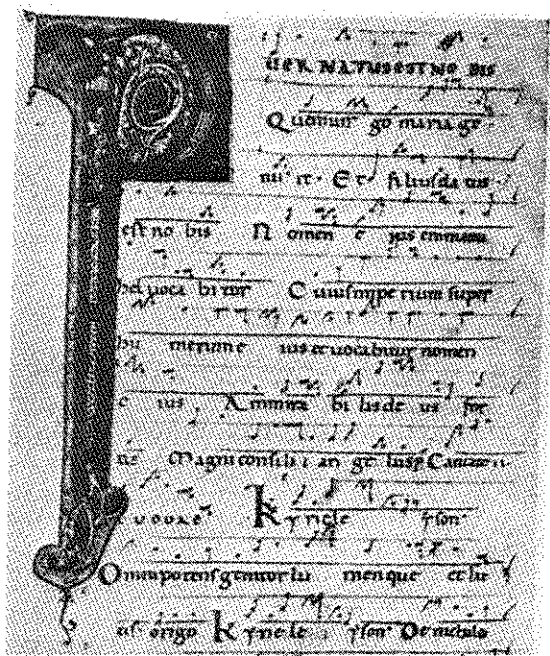 PUER NATUS EST NO BIS
Quem uir go maria ge
nu it · Et filius da tus
est no bis Nomen e ius emmanu
hel uoca bi tur Cuius impe rium super
hu merum e ius et uocabitur nomen
e ius . Ammira bi lis de us for
tis Magni consili i an ge lus
Kyrie le yson
Omnipotens genitor lu menque et lu
cis origo Kyrie le yson De nichilo